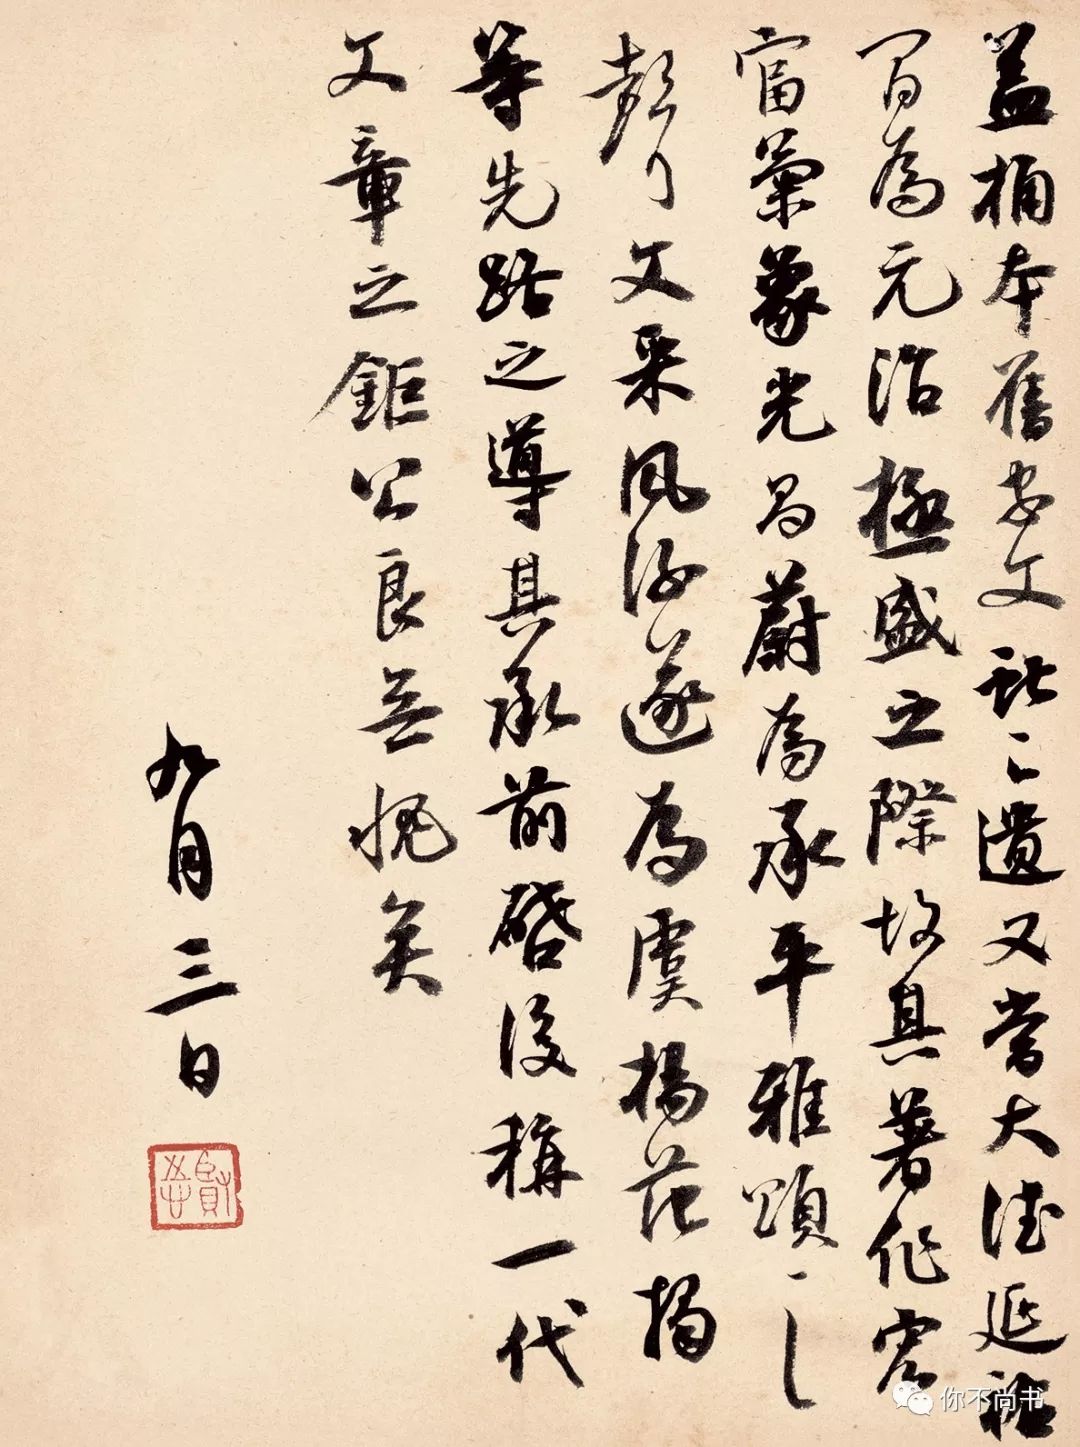 蓋桷本舊家文獻之遺又當大德延祐
間為元治極盛之際故其著作宏
富氣象光昌蔚為承平雅頌之
聲文采風流遂為虞楊范揭
等先路之導其承前啓後稱一代
文章之鉅公良無愧矣
九月三日
你不尚书